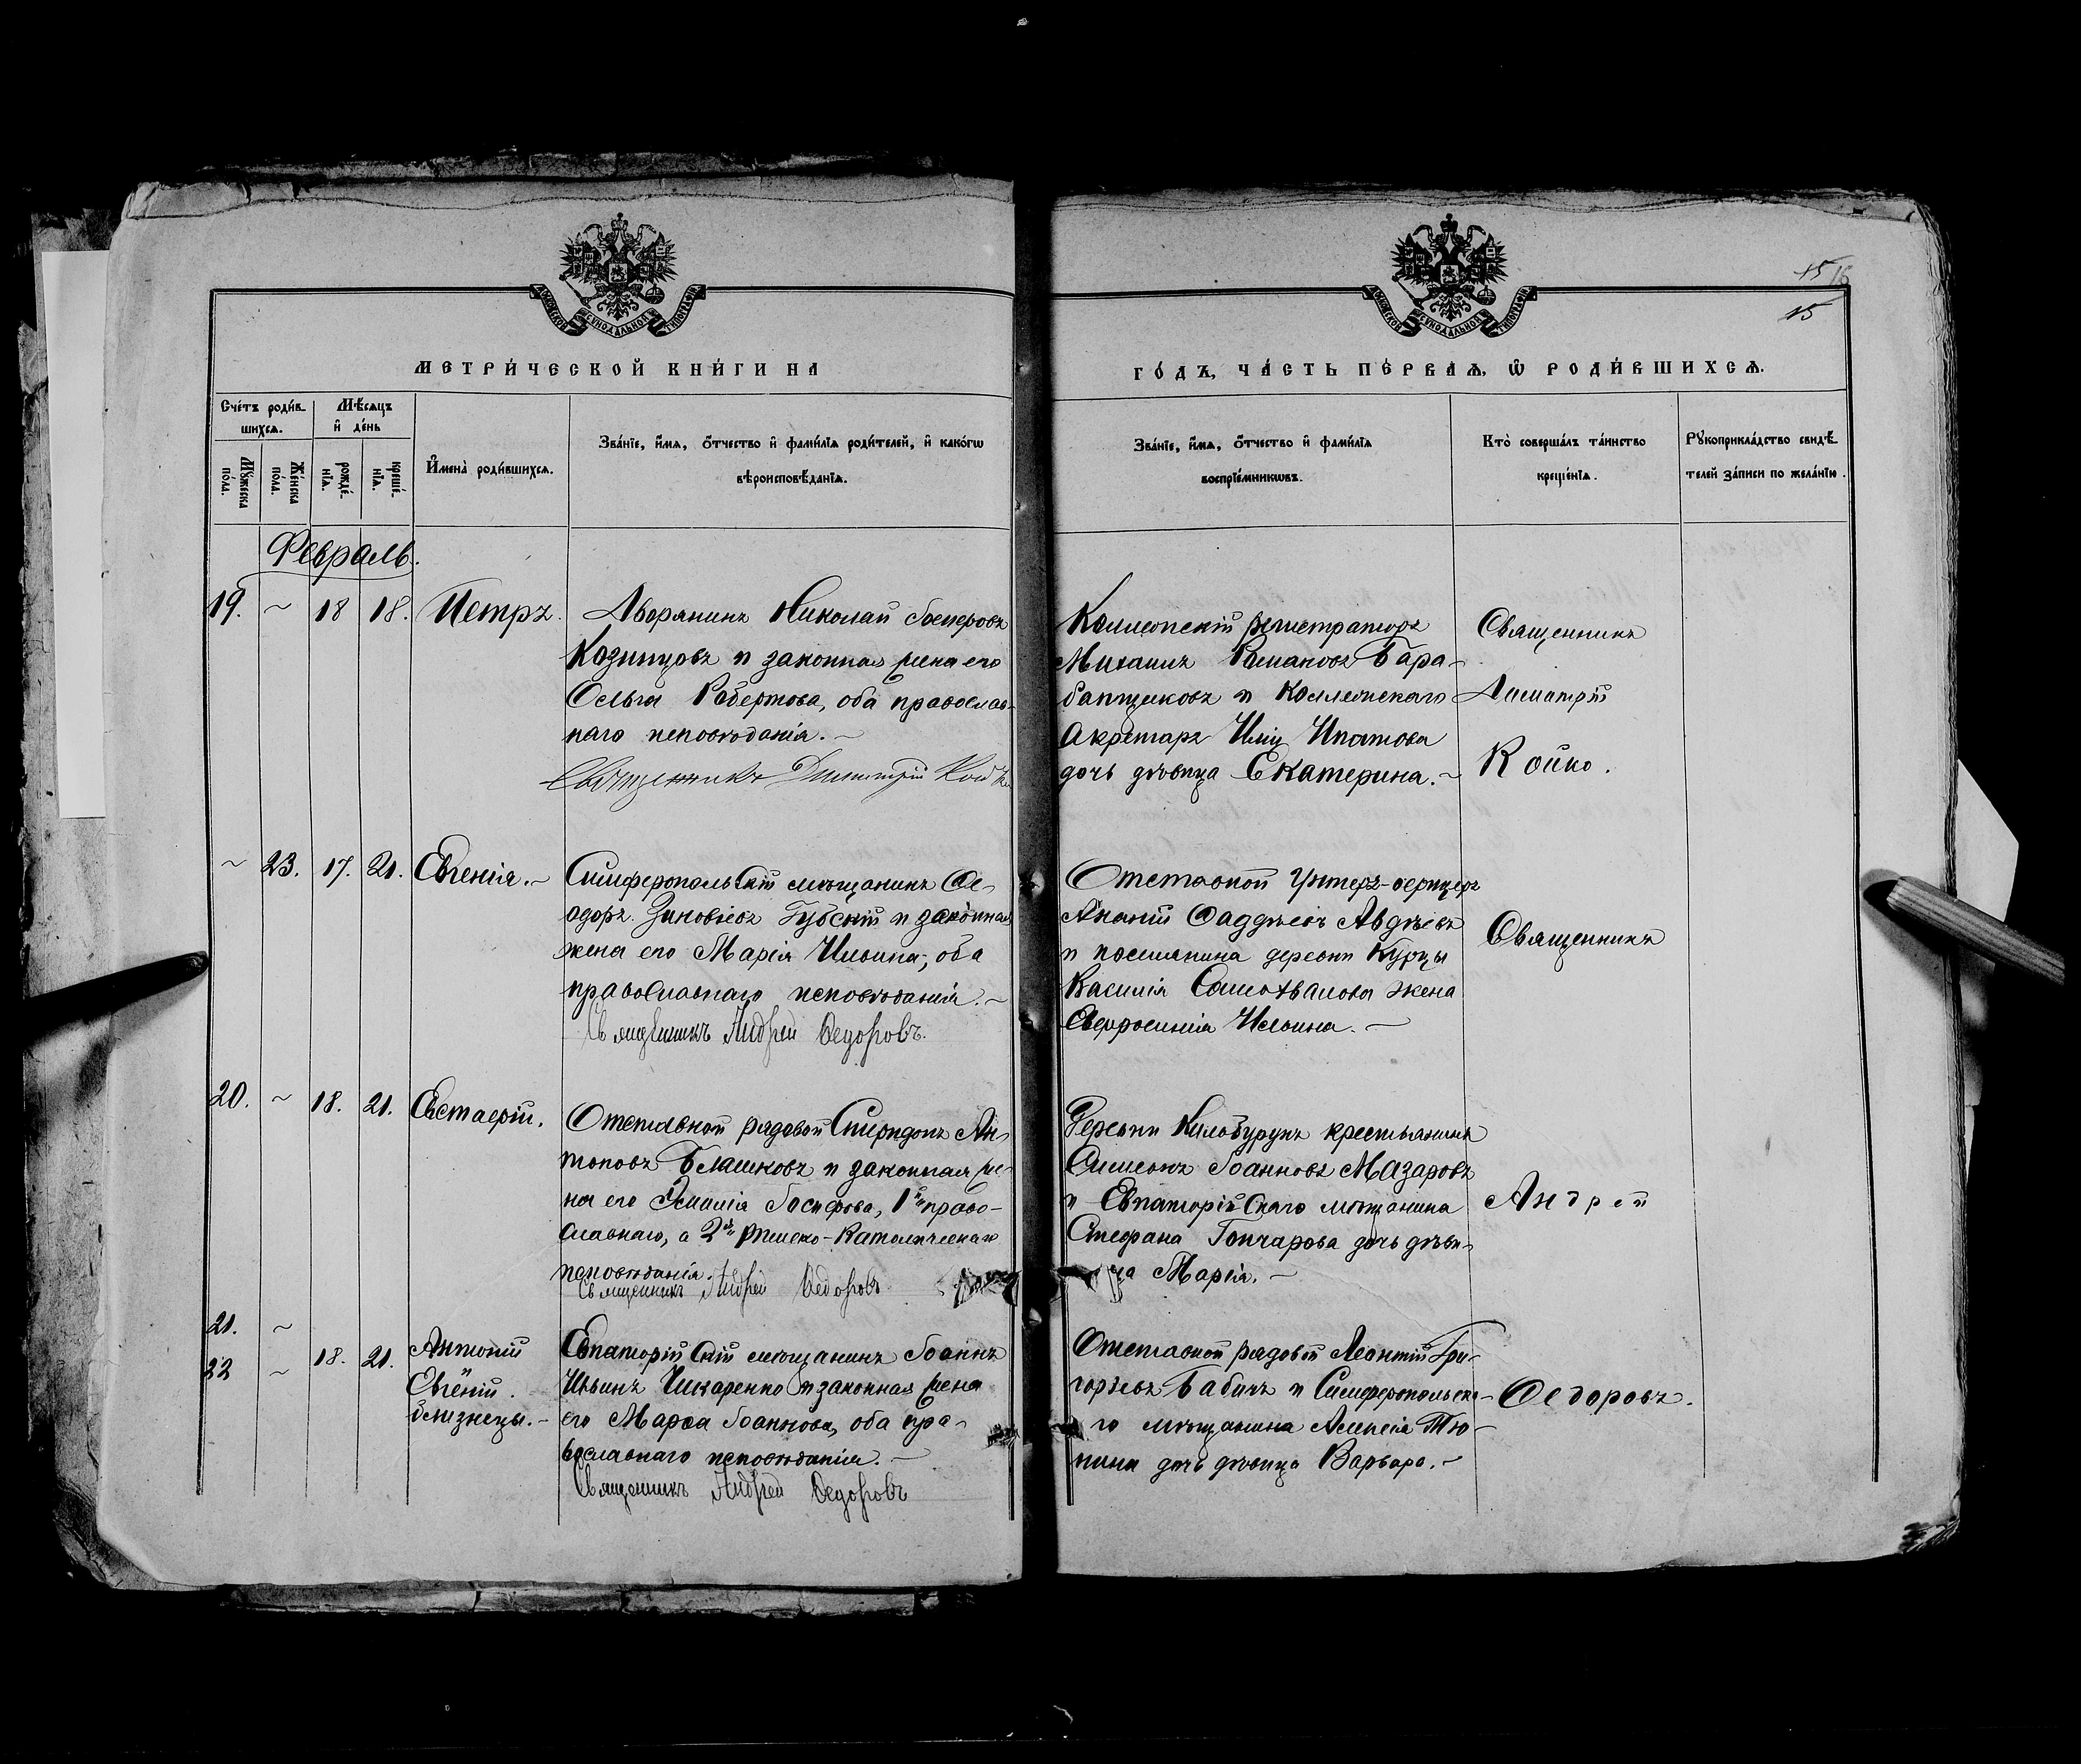 15 16
15
МОСКОВСКОЙ СѴНОДАЛЬНОЙ ТИПОГРАФІИ
МОСКОВСКОЙ СѴНОДАЛЬНОЙ ТИПОГРАФІИ
МЕТРИ́ЧЕСКОЙ КНИ́ГИ НА
ГО́ДЪ, ЧА́СТЬ ПЕ́РВАѦ, Ѽ РОДИ́ВШИХСѦ.
Сче́тъ роди́в-
шихсѧ.
Мꙋ́жеска по́ла.
Же́нска по́ла.
Мѣ́сѧцъ
и҆ де́нь
рожде́-
нїѧ.
креще́-
нїѧ.
И҆мена̀ роди́вшихсѧ.
Зва́нїе, и҆́мѧ, ѻ҆́тчество и҆ фами́лїѧ роди́телей, и҆ како́гѡ
вѣроисповѣ́данїѧ.
Зва́нїе, и҆́мѧ, ѻ҆́тчество и҆ фами́лїѧ
воспрїе́мникѡвъ.
Кто̀ соверша́лъ та́инство
креще́нїѧ.
Рꙋкоприкла́дство свидѣ́-
телей за́писи по жела́нїю.
Февраль.
19. ~ 18 18. Петръ.
Дворянинъ Николай Іосифовъ
Козинцовъ и законная жена его
Ольга Робертова, оба православ-
наго исповѣданія. ~
Священникъ Димитрій Койко
Коллежскій регистраторъ
Михаилъ Романовъ Бара-
банщиковъ и Коллежскаго
Секретаря Ипатова
дочь дѣвица Екатерина. ~
Священникъ
Димитрій
Койко.
~ 23. 17. 21. Евгенія. ~
Симферопольскій мѣщанинъ Ѳе-
одоръ Зиновіевъ Губскій и законная
жена его Марія Ильина, оба
православнаго исповѣданія. ~
Священникъ Андрей Ѳедоровъ.
Отставной Унтеръ-офицеръ
Ананій Ѳаддѣевъ Авдѣевъ
и поселянина деревни Курцы
Василія Самохвалова жена
Евфросинія Ильина. ~
Священникъ
20. ~ 18. 21. Евстафій.
Отставной рядовой Спиридонъ Ан-
тоновъ Блашковъ и законная же-
на его Эмилія Іосифова, 1й право-
славнаго, а 2я Римско-Католическаго
исповѣданія.
Священникъ Андрей Ѳедоровъ
Деревни Килобурунъ крестьянинъ
Симеонъ Іоанновъ Мазаровъ
и Евпаторійскаго мѣщанина
Стефана Гончарова дочь дѣви-
ца Марія. ~
Андрей
21. ~
22 ~ 18. 21. Антоній
Евгеній.
близнецы. ~
Евпаторійскій мѣщанинъ Іоаннъ
Ильинъ Шкаренко и законная жена
его Марѳа Іоаннова, оба пра-
вославнаго исповѣданія. ~
Священникъ Андрей Ѳедоровъ
Отставной рядовой Леонтій Гри-
горьевъ Бабичъ и Симферопольска-
го мѣщанина Алексія Тю-
нина дочь дѣвица Варвара. ~
Ѳедоровъ.